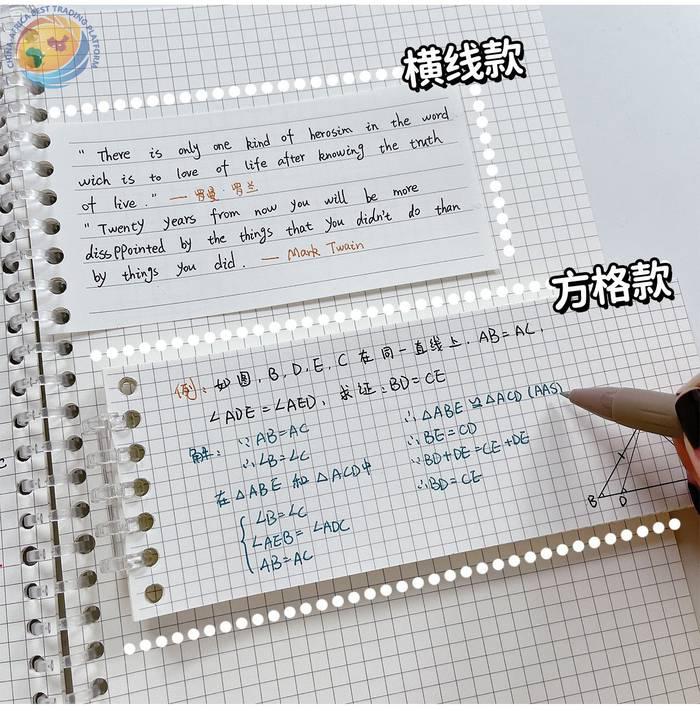 CHINA-AFRICA BEST TRADING PLATFORM
横线款
" There is only one kind of herosim in the word
wich is to love of life after knowing the truth
of live . " — 罗曼·罗兰
" Twenty years from now you will be more
dissppointed by the things that you didn't do than
by things you did . — Mark Twain
方格款
例: 如图, B, D, E, C 在同一直线上, AB=AC,
∠ADE=∠AED, 求证:BD=CE
解: ∵AB=AC
∴∠B=∠C
在△ABE 和△ACD中
∠B=∠C
∠AEB=∠ADC
AB=AC
∴△ABE≌△ACD (AAS)
∴BE=CD
∵BD+DE=CE+DE
∴BD=CE
B D